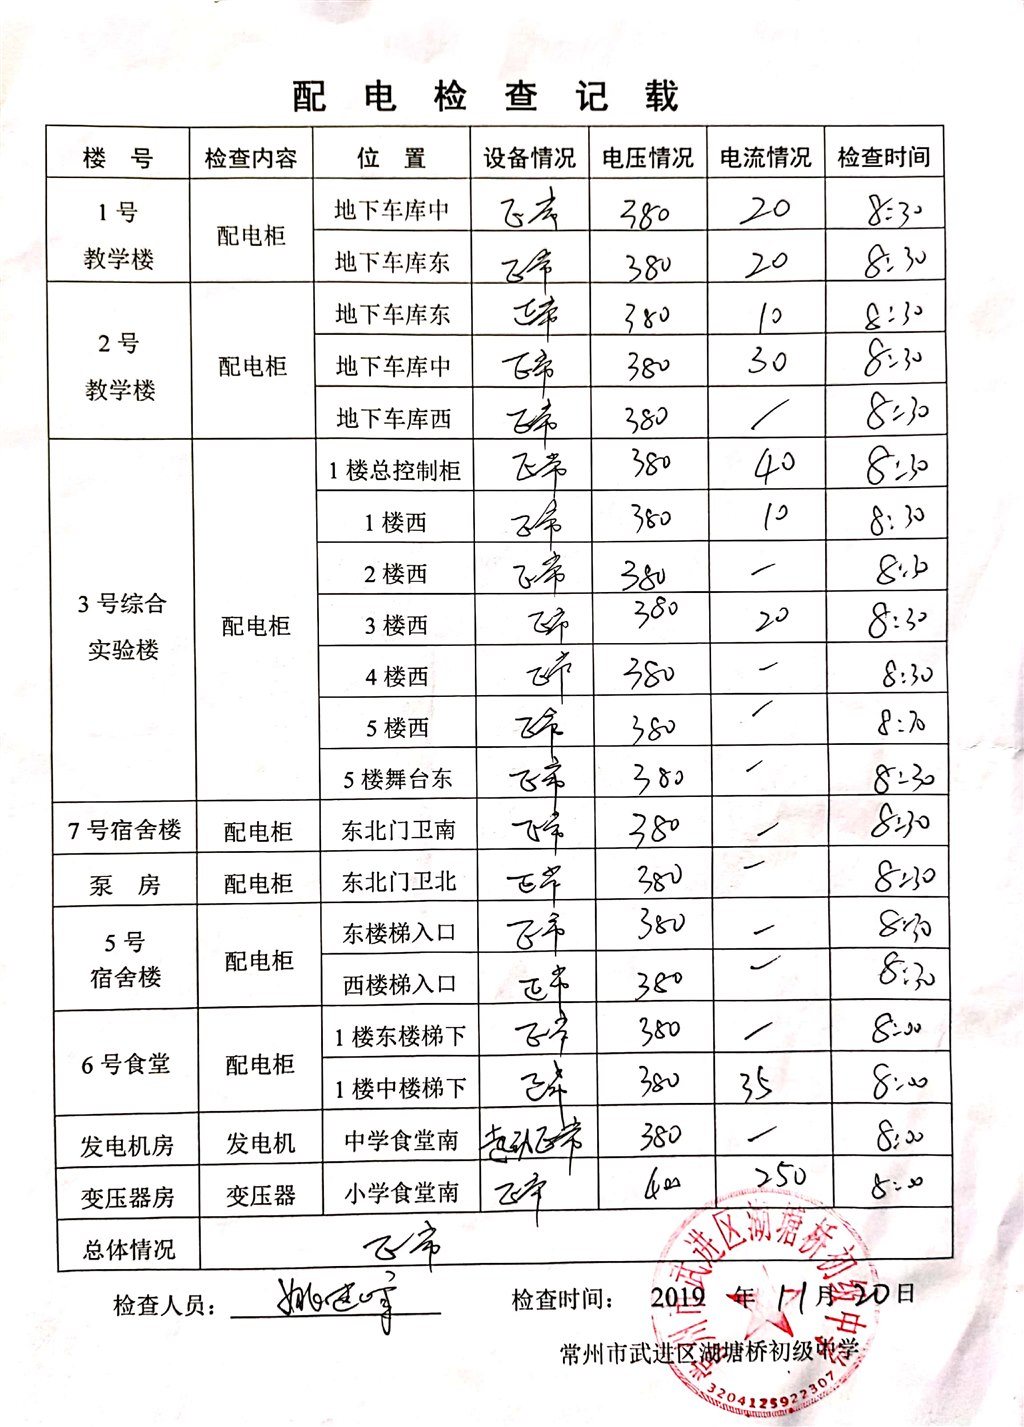 配电检查记载
楼号 检查内容 位置 设备情况 电压情况 电流情况 检查时间
1号教学楼 配电柜 地下车库中 正常 380 20 8:30
地下车库东 正常 380 20 8:30
2号教学楼 配电柜 地下车库东 正常 380 10 8:30
地下车库中 正常 380 30 8:30
地下车库西 正常 380 / 8:30
3号综合实验楼 配电柜 1楼总控制柜 正常 380 40 8:30
1楼西 正常 380 10 8:30
2楼西 正常 380 / 8:30
3楼西 正常 380 20 8:30
4楼西 正常 380 / 8:30
5楼西 正常 380 / 8:30
5楼舞台东 正常 380 / 8:30
7号宿舍楼 配电柜 东北门卫南 正常 380 / 8:30
泵房 配电柜 东北门卫北 正常 380 / 8:30
5号宿舍楼 配电柜 东楼梯入口 正常 380 / 8:30
西楼梯入口 正常 380 / 8:30
6号食堂 配电柜 1楼东楼梯下 正常 380 / 8:00
1楼中楼梯下 正常 380 35 8:00
发电机房 发电机 中学食堂南 启动正常 380 / 8:00
变压器房 变压器 小学食堂南 正常 400 250 8:00
总体情况 正常
检查人员: 姚建峰 检查时间: 2019年11月20日
常州市武进区湖塘桥初级中学
常州市武进区湖塘桥初级中学
3204125922307